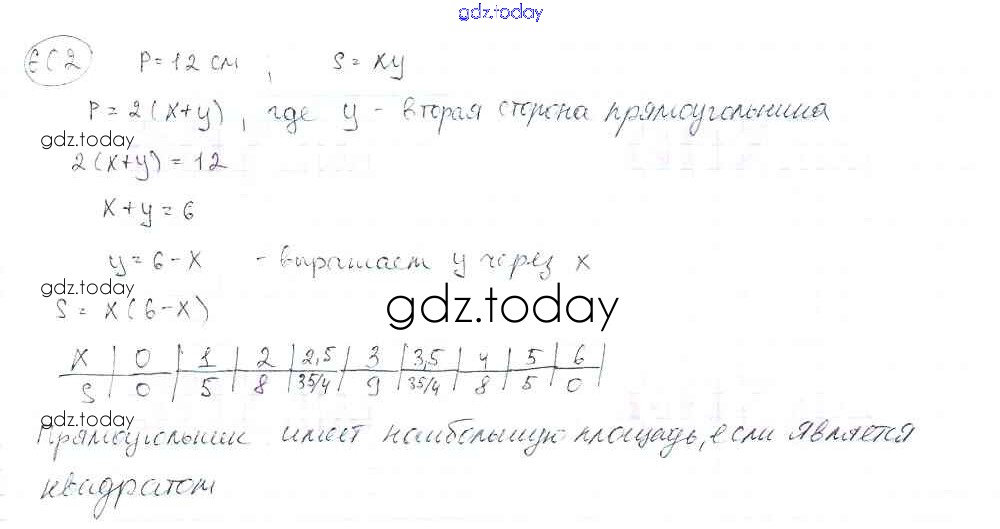 gdz.today
ЕС2 P=12 см ; S=xy
P=2(x+y), где y - вторая сторона прямоугольника
gdz.today
2(x+y)=12
x+y=6
y=6-x - выражает y через x
gdz.today
S=x(6-x)
gdz.today
x | 0 | 1 | 2 | 2,5 | 3 | 3,5 | 4 | 5 | 6 |
S | 0 | 5 | 8 | 35/4 | 9 | 35/4 | 8 | 5 | 0 |
gdz.today
Прямоугольник имеет наибольшую площадь, если является
квадратом